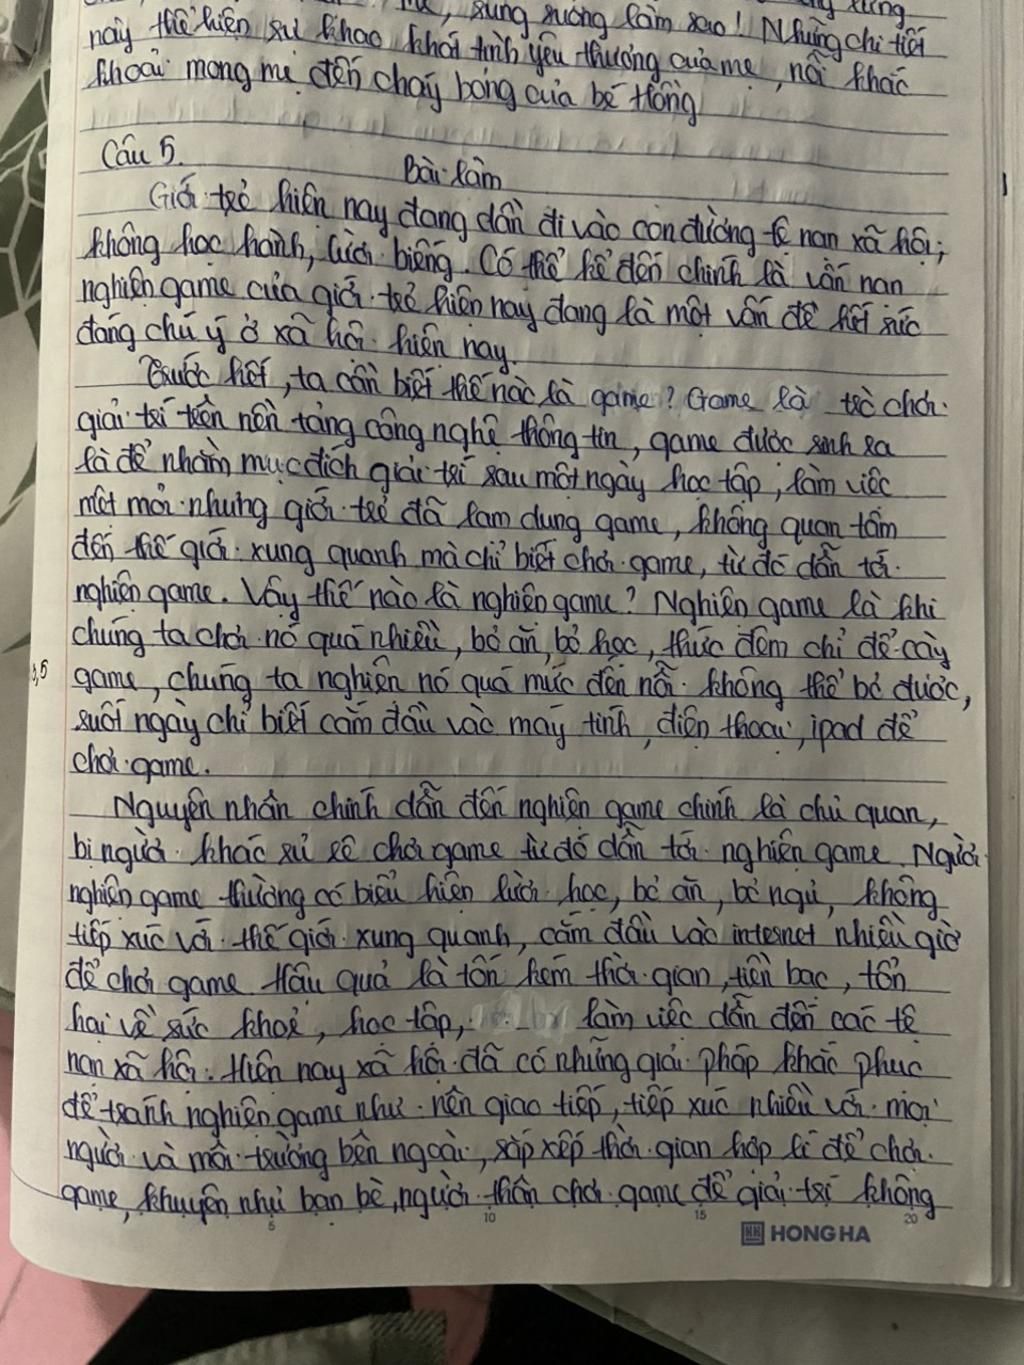 sung sướng làm sao! Những chi tiết
này thể hiện sự khao khát tình yêu thương của mẹ, nỗi khắc
khoải mong mẹ đến cháy bỏng của bé Hồng
Câu 5.
Bài làm
Giới trẻ hiện nay đang dần đi vào con đường tệ nạn xã hội,
không học hành, lười biếng. Có thể kể đến chính là vấn nạn
nghiện game của giới trẻ hiện nay đang là một vấn đề hết sức
đáng chú ý ở xã hội hiện nay.
Trước hết, ta cần biết thế nào là game? Game là trò chơi
giải trí trên nền tảng công nghệ thông tin, game được sinh ra
là để nhằm mục đích giải trí sau một ngày học tập, làm việc
mệt mỏi nhưng giới trẻ đã lạm dụng game, không quan tâm
đến thế giới xung quanh mà chỉ biết chơi game, từ đó dẫn tới
nghiện game. Vậy thế nào là nghiện game? Nghiện game là khi
chúng ta chơi nó quá nhiều, bỏ ăn, bỏ học, thức đêm chỉ để cày
game, chúng ta nghiện nó quá mức đến nỗi không thể bỏ được,
suốt ngày chỉ biết cắm đầu vào máy tính, điện thoại, ipad để
chơi game.
Nguyên nhân chính dẫn đến nghiện game chính là chủ quan,
bị người khác rủ rê chơi game từ đó dẫn tới nghiện game. Người
nghiện game thường có biểu hiện lười học, bỏ ăn, bỏ ngủ, không
tiếp xúc với thế giới xung quanh, cắm đầu vào internet nhiều giờ
để chơi game. Hậu quả là tốn kém thời gian, tiền bạc, tổn
hại về sức khoẻ, học tập, làm việc dẫn đến các tệ
nạn xã hội. Hiện nay xã hội đã có những giải pháp khắc phục
để tránh nghiện game như nên giao tiếp, tiếp xúc nhiều với mọi
người và môi trường bên ngoài, sắp xếp thời gian hợp lí để chơi
game, khuyên nhủ bạn bè, người thân chơi game để giải trí không
5 10 15 20
HONG HA